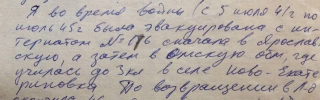 Я во время войны (с 5 июля 41г по
июль 45г была эвакуирована с ин-
тернатом № 1 сначала в Ярослав.
скую, а затем в омскую обл, где
училась до 3кл в селе Ново-Екате
риновка По возвращении в Л-д